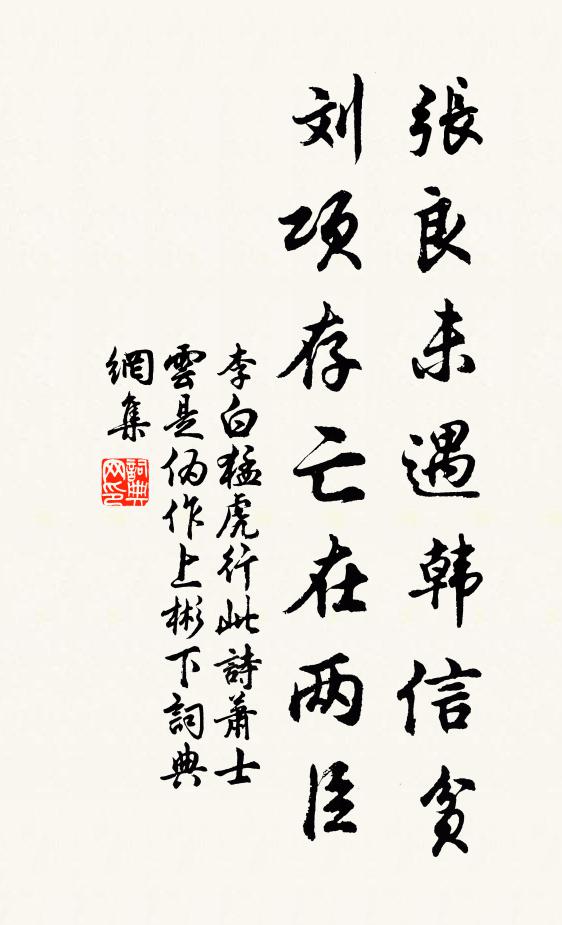 張良未遇韩信贫
刘项存亡在两臣
李白猛虎行此詩萧士
雲是伪作上彬下詞典
網集
詞典網印